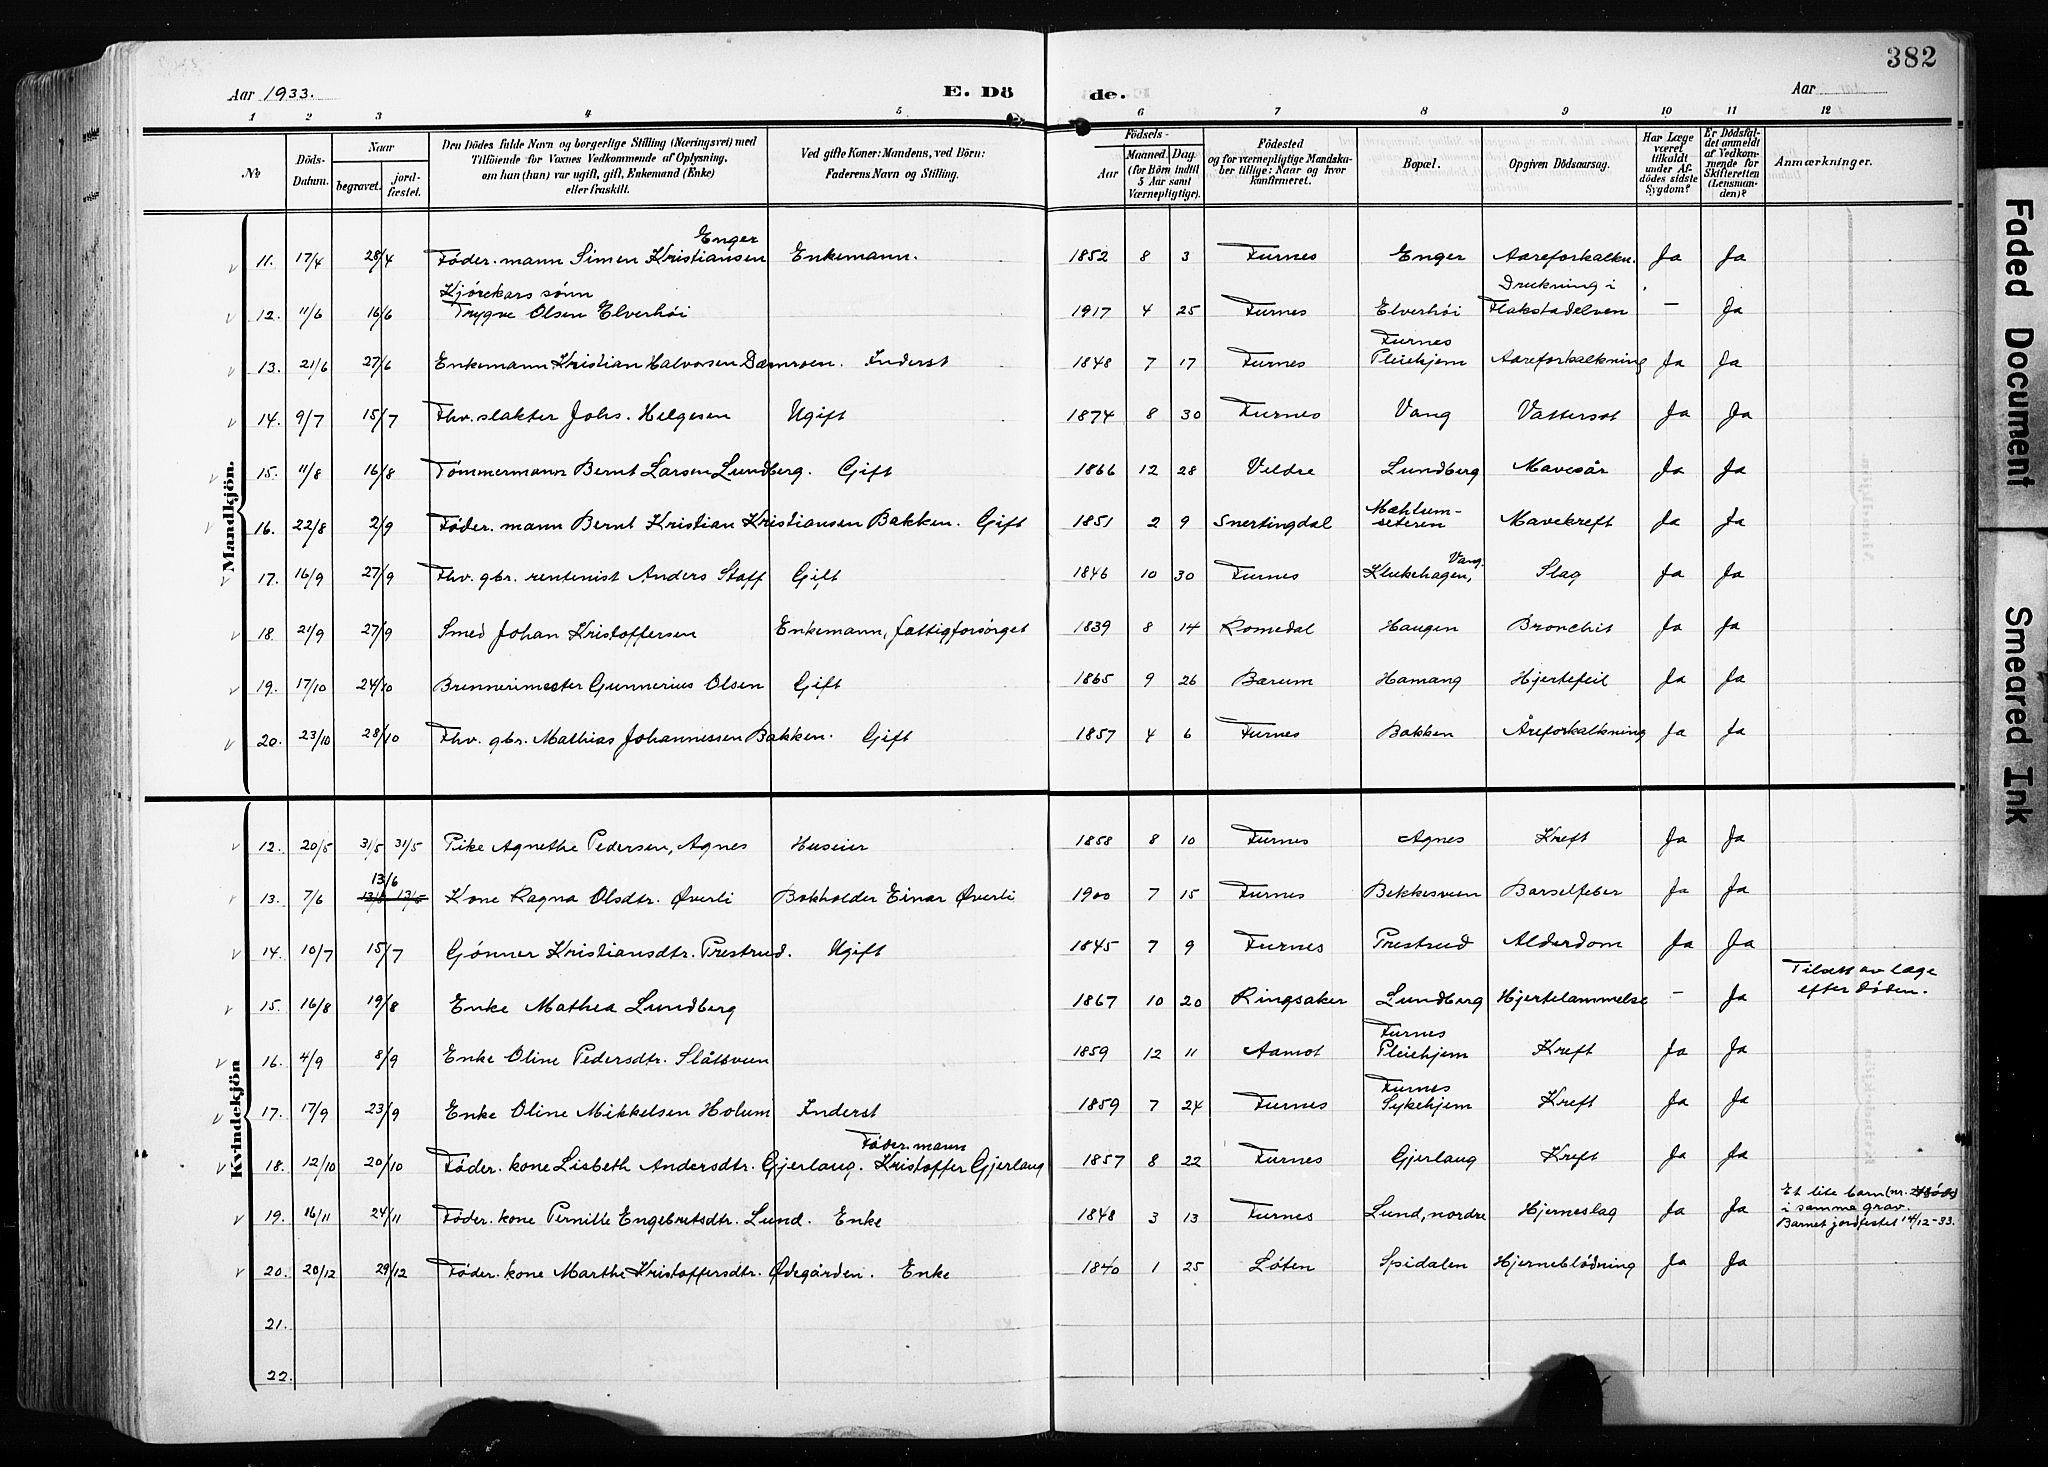 382
Aar 1933.
E. Dö
de.
Aar
1 2 3 4 5 6 7 8 9 10 11 12
No
Döds-Datum.
Naar
begravet.
jord-fæstet.
Den Dödes fulde Navn og borgerlige Stilling (Næringsvei) med
Tilföiende for Voxnes Vedkommende af Oplysning,
om han (hun) var ugift, gift, Enkemand (Enke)
eller fraskilt.
Ved gifte Koner: Mandens, ved Börn:
Faderens Navn og Stilling.
Födsels-
Aar
Maaned. Dag.
(for Börn indtil
5 Aar samt
Værnepligtige).
Födested
og for værnepligtige Mandska-
ber tillige: Naar og hvor
konfirmeret.
Bopæl.
Opgiven Dödsaarsag.
Har Læge
været
tilkaldt
under Af-
dödes sidste
Sygdom?
Er Dödsfal-
det anmeldt
af Vedkom-
mende for
Skifteretten
(Lensman-
den)?
Anmærkninger.
Mandkjön.
11. 17/4 28/4 Føder. mann Simen Kristiansen Enger Enkemann. 1852 8 3 Furnes Enger Aareforkalkn. Ja Ja
12. 11/6 16/6 Kjørekars sønn Trygve Olsen Elverhöi 1917 4 25 Furnes Elverhöi Drukning i Flakstadelven – Ja
13. 21/6 27/6 Enkemann Kristian Halvorsen Dæmroen. Inderst 1848 7 17 Furnes Furnes Pleiehjem Aareforkalkning Ja Ja
14. 9/7 15/7 Fhv. slakter Johs. Helgesen Ugift 1874 8 30 Furnes Vang Vattersot Ja Ja
15. 11/8 16/8 Tömmermann Bernt Larsen Lundberg. Gift 1866 12 28 Veldre Lundberg Mavesår Ja Ja
16. 22/8 2/9 Føder. mann Bernt Kristian Kristiansen Bakken. Gift 1851 2 9 Snertingdal Mæhlum-seteren Mavekreft Ja Ja
17. 16/9 27/9 Fhv. gbr. rentenist Anders Staff Gift 1846 10 30 Furnes Klukehagen, Vang. Slag Ja Ja
18. 21/9 27/9 Smed Johan Kristoffersen Enkemann, fattigforsörget 1839 8 14 Romedal Haugen Bronchit Ja Ja
19. 17/10 24/10 Brennerimester Gunnerius Olsen Gift 1865 9 26 Bærum Hamang Hjertefeil Ja Ja
20. 23/10 28/10 Fhv. gbr. Mathias Johannessen Bakken. Gift 1857 4 6 Furnes Bakken Åreforkalkning Ja Ja
Kvindekjön
12. 20/5 31/5 31/5 Pike Agnethe Pedersen, Agnes Huseier 1858 8 10 Furnes Agnes Kreft Ja Ja
13. 7/6 13/6 Kone Ragna Olsdtr. Øverli Bokholder Einar Øverli 1900 7 15 Furnes Bekkesveen Barselfeber Ja Ja
14. 10/7 15/7 Gönner Kristiansdtr. Prestrud. Ugift 1845 7 9 Furnes Prestrud Alderdom Ja Ja
15. 16/8 19/8 Enke Mathea Lundberg 1867 10 20 Ringsaker Lundberg Hjertelammelse – Ja Tilsett av læge efter døden.
16. 4/9 8/9 Enke Oline Pedersdtr. Slåttsveen 1859 12 11 Aamot Furnes Pleiehjem Kreft Ja Ja
17. 17/9 23/9 Enke Oline Mikkelsen Holum Inderst 1859 7 24 Furnes Furnes Sykehjem Kreft Ja Ja
18. 12/10 20/10 Føder. kone Lisbeth Andersdtr. Gjerlaug. Føder. mann Kristoffer Gjerlaug 1857 8 22 Furnes Gjerlaug Kreft Ja Ja
19. 16/11 24/11 Føder. kone Pernille Engebretsdtr. Lund. Enke 1848 3 13 Furnes Lund, nordre Hjerneslag Ja Ja Et lite barn (nr. i samme grav. Barnet jordfestet 14/12-33.
20. 20/12 29/12 Føder. kone Marthe Kristoffersdtr. Ødegården. Enke 1840 1 25 Løten Spidalen Hjerneblödning Ja Ja
21.
22.
Faded Document
Smeared Ink